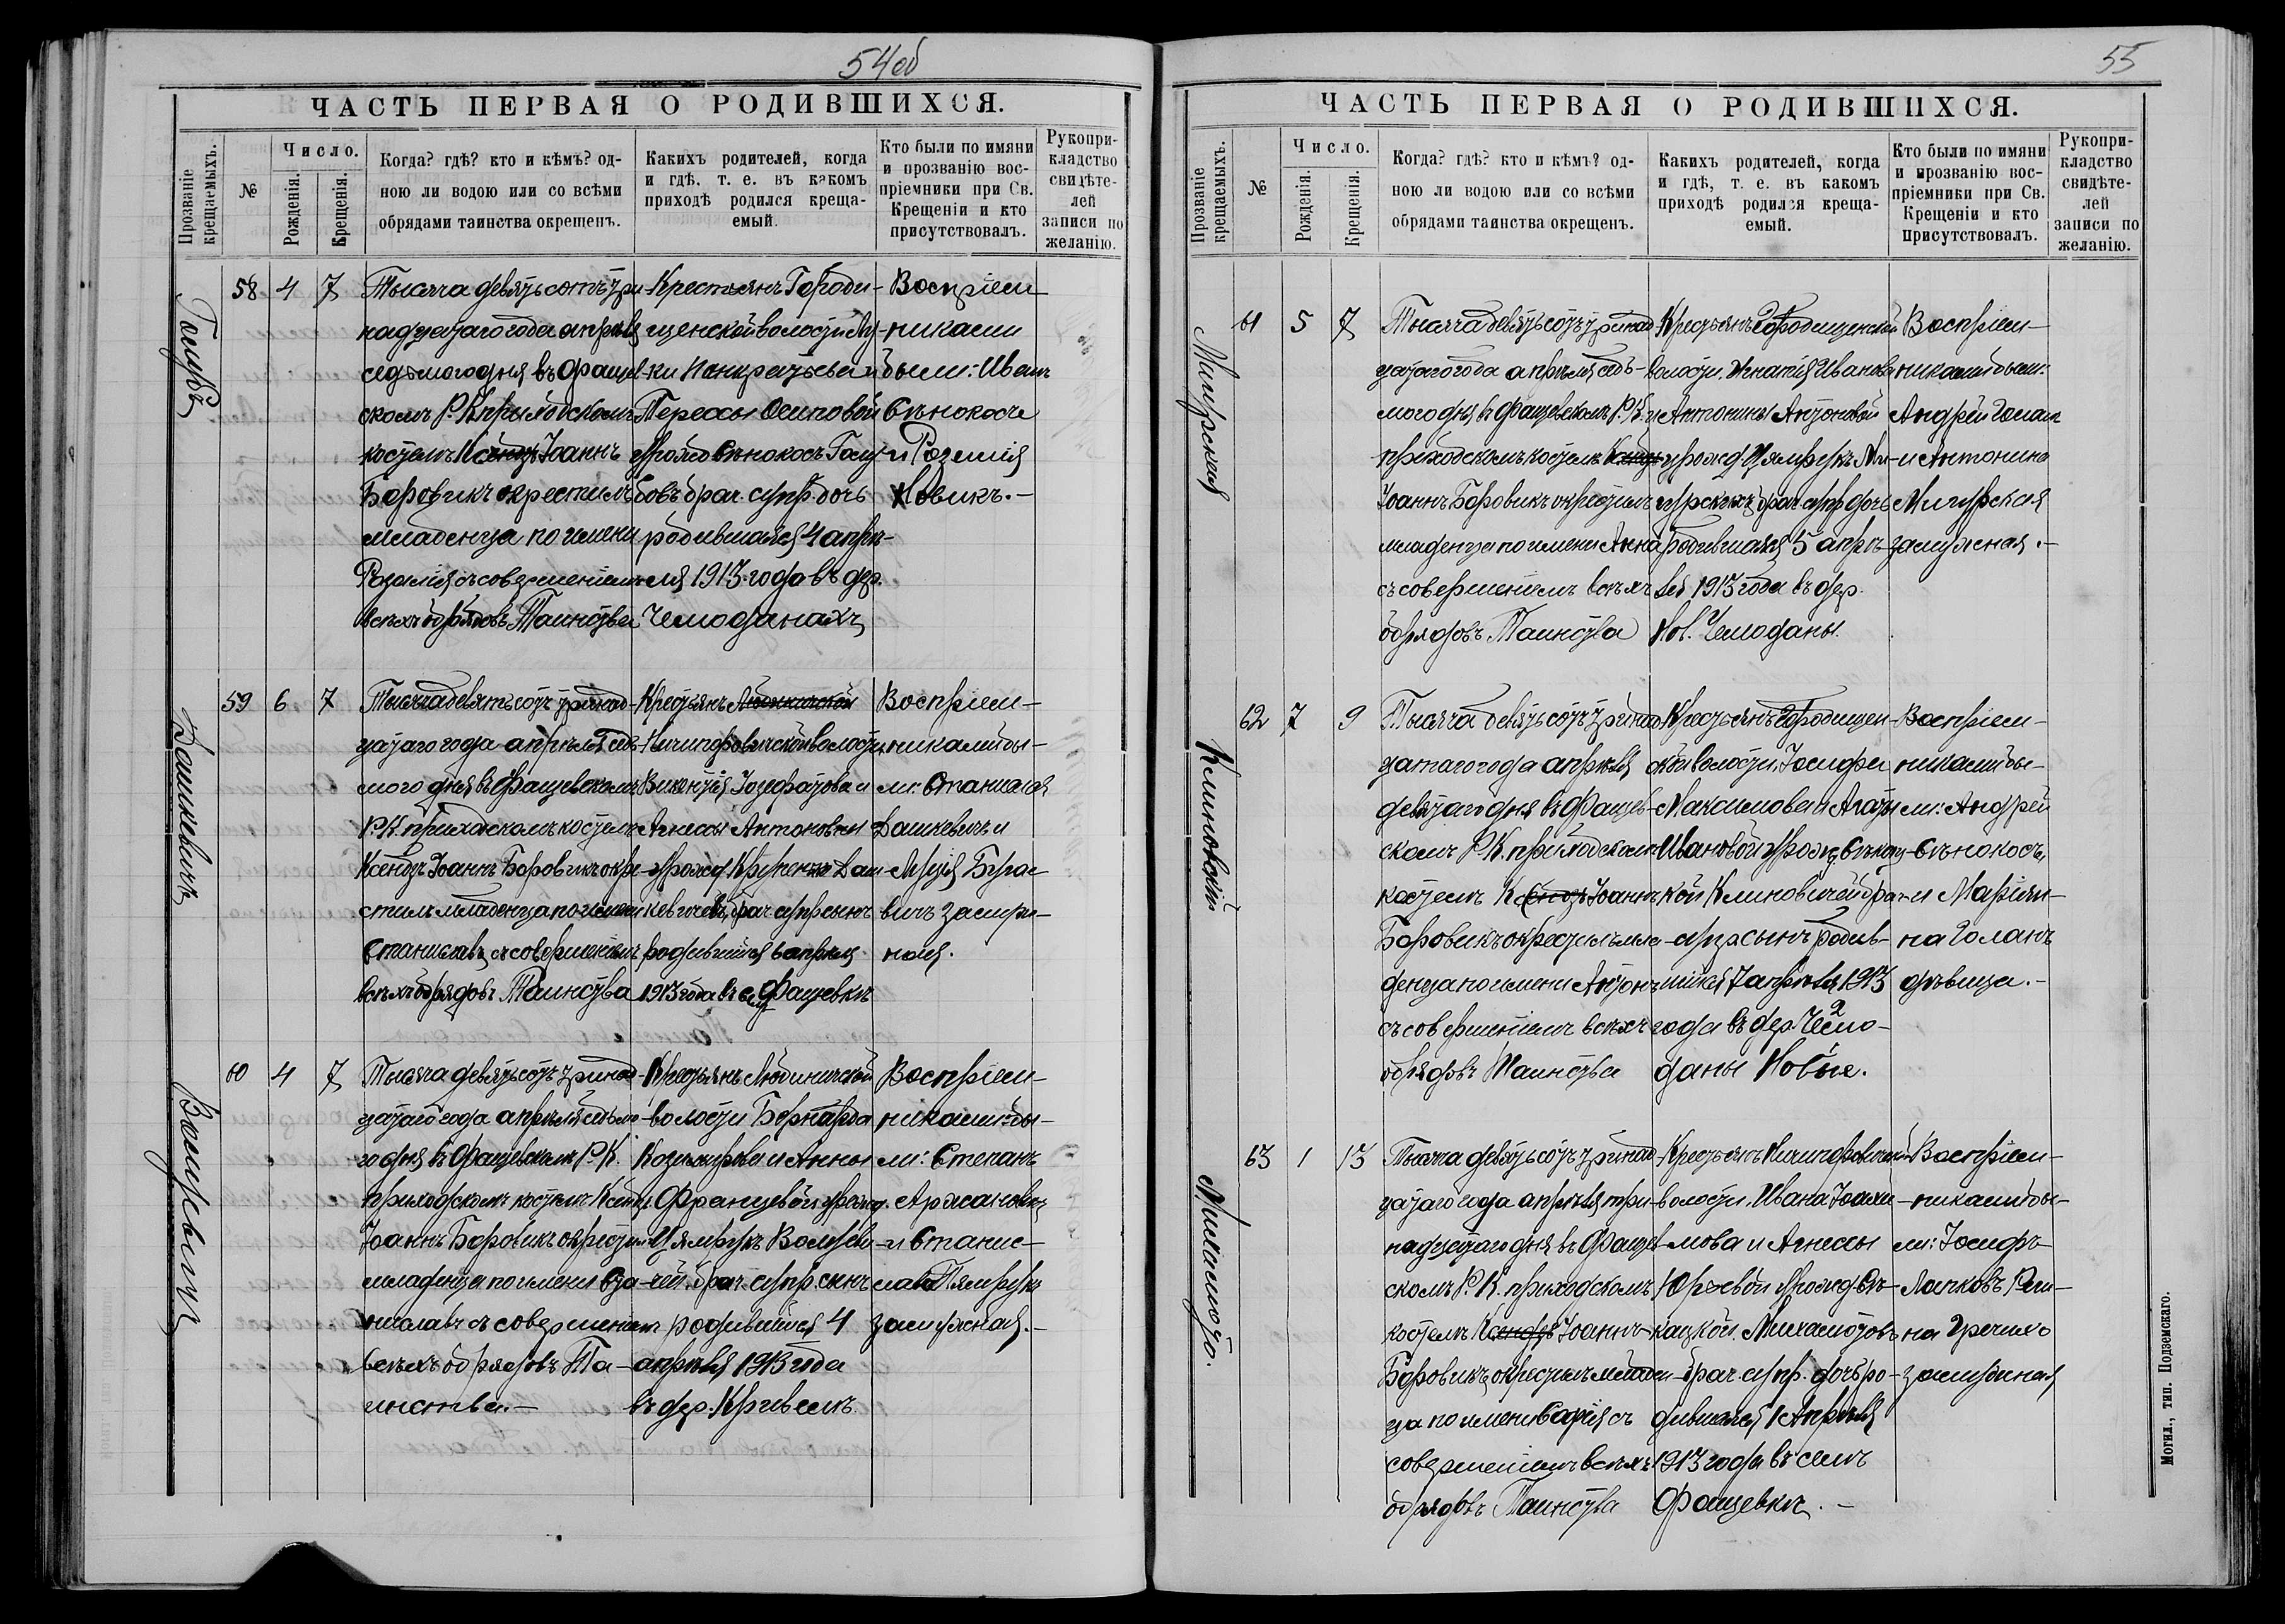 54об
ЧАСТЬ ПЕРВАЯ О РОДИВШИХСЯ.
Прозваніе крещаемыхъ.
№
Число.
Рожденія.
Крещенія.
Когда? гдѣ? кто и кѣмъ? од-
ною ли водою или со всѣми
обрядами таинства окрещенъ.
Какихъ родителей, когда
и гдѣ, т. е. въ какомъ
приходѣ родился креща-
емый.
Кто были по имяни
и прозванію вос-
пріемники при Св.
Крещеніи и кто
присутствовалъ.
Рукопри-
кладство
свидѣте-
лей
записи по
желанію.
58 4 7
Тысяча девятьсотъ три-
надцатаго года апрѣля
седьмого дня въ Фащев-
скомъ Р. К. приходскомъ
костелѣ Ксендзъ Іоаннъ
Боровикъ окрестилъ
младенца по имени
Розалія съ совершеніемъ
всѣхъ обрядовъ Таинства
Крестьянъ Городи-
щенской волости
и
Терезы Осиповой
урожд Сѣнокосъ
брач. супр. дочь
родившаяся 4 апрѣ-
ля 1913 года въ дер.
Чемоданахъ
Воспріем-
никами
были: Иванъ
Сѣнокосъ
и Розалія
Новикъ.-
Дашкевичъ
59 6 7
Тысяча девятьсотъ тринад-
цатаго года апрѣля седь-
мого дня въ Фащевскомъ
Р. К. приходскомъ костелѣ
Ксендзъ Іоаннъ Боровикъ окре-
стилъ младенца по имени
Станиславъ съ совершеніемъ
всѣхъ обрядовъ Таинства
Крестьянъ
волости
Викентія Іозефатова и
Агнессы Антоновны
урожд. Даш-
кевичевъ, брач. супр сынъ
родившійся 6 апрѣля
1913 года въ Фащевкѣ
Воспріем-
никами бы-
ли: Станислав
Дашкевичъ и
замуж-
ная.
60 4 7
Тысяча девятьсотъ тринад-
цатаго года апрѣля седьмо-
го дня въ Фащевскомъ Р. К.
приходскомъ костелѣ Ксендзъ
Іоаннъ Боровикъ окрестилъ
младенца по имени Ста-
ниславъ съ совершеніемъ
всѣхъ обрядовъ Та-
инства.-
Крестьянъ
волости Бернарда
Казимірова и Анны
Францевой урожд.
брач. супр. сынъ
родившійся 4
апрѣля 1913 года
въ дер. Кривель.
Воспріем-
никами бы-
ли: Степанъ
и Станис-
лава
замужная.-
55
ЧАСТЬ ПЕРВАЯ О РОДИВШИХСЯ.
Прозваніе крещаемыхъ.
№
Число.
Рожденія.
Крещенія.
Когда? гдѣ? кто и кѣмъ? од-
ною ли водою или со всѣми
обрядами таинства окрещенъ.
Какихъ родителей, когда
и гдѣ, т. е. въ какомъ
приходѣ родился креща-
емый.
Кто были по имяни
и прозванію вос-
пріемники при Св.
Крещеніи и кто
присутствовалъ.
Рукопри-
кладство
свидѣте-
лей
записи по
желанію.
61 5 7
Тысяча девятьсотъ тринад-
цатаго года апрѣля седь-
мого дня въ Фащевскомъ Р. К.
приходскомъ костелѣ Ксендзъ
Іоаннъ Боровикъ окрестилъ
младенца по имени Анна
съ совершеніемъ всѣхъ
обрядовъ Таинства
Крестьянъ Городищенской
волости. Игнатія Иванова
и Антонины Антоновой
урожд
брач. супр дочь
родившаяся 5 апрѣ-
ля 1913 года въ дер.
Нов. Чемоданы.
Воспріем-
никами были:
Андрей Голанъ
и Антонина
замужная.-
Климовскій
62 7 9
Тысяча девятьсотъ тринад-
цатаго года апрѣля
девятаго дня въ Фащев-
скомъ Р. К. приходскомъ
костелѣ Ксендзъ Іоаннъ
Боровикъ окрестилъ мла-
денца по имени Антонъ
съ совершеніемъ всѣхъ
обрядовъ Таинства
Крестьянъ Городищен-
ской волости. Іосифа
Максимова и Агаты
Ивановой урожд.
супр сынъ родив-
шійся 7 апрѣля 1913
года въ дер. Чемо-
даны Новые.
Воспріем-
никами бы-
ли: Андрей
Сѣнокосъ,
и Маріян-
на Голанъ
дѣвица.-
63 1 13
Тысяча девятьсотъ тринад-
цатаго года апрѣля три-
надцатаго дня въ Фащев-
скомъ Р. К. приходскомъ
костелѣ Ксендзъ Іоаннъ
Боровикъ окрестилъ младен-
ца по имени Софія съ
совершеніемъ всѣхъ
обрядовъ Таинства
Крестьянъ
волости. Ивана Іоахи-
мова и Агнессы
Юрьевой урожд.
брач. супр. дочь ро-
дившаяся 1 Апрѣля
1913 года въ селѣ
Фащевкѣ.-
Воспріем-
никами бы-
ли: Іосифъ
замужная
Могил., тип. Подземскаго.